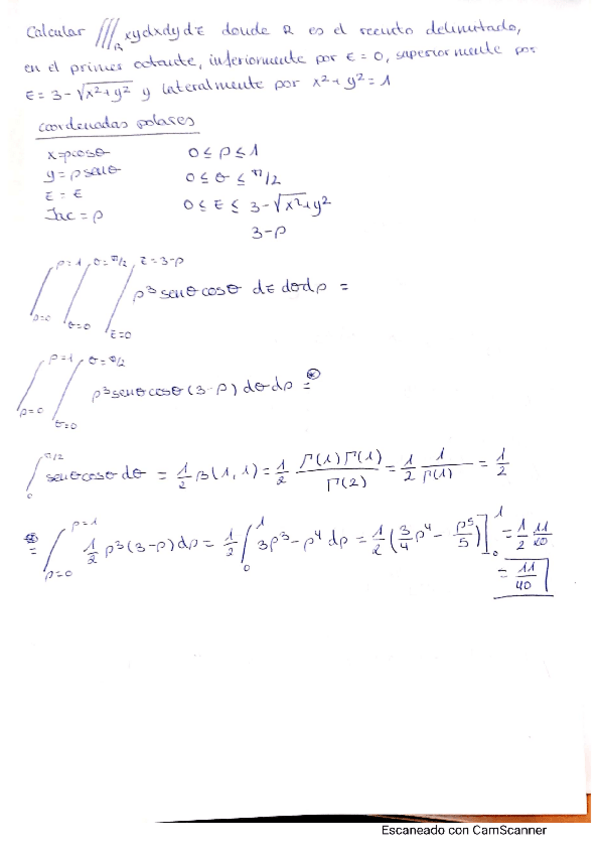 Calcular ∭_R xydxdydz donde R es el recinto delimitado,
en el primer octante, inferiormente por z = 0, superiormente por
z = 3 - √x²+y² y lateralmente por x²+y² = 1
coordenadas polares
x=ρcosθ 0 ≤ ρ ≤ 1
y = ρsenθ 0 ≤ θ ≤ π/2
z = z 0 ≤ z ≤ 3-√x²+y²
Jac = ρ 3-ρ
∫_{ρ=0}^{ρ=1} ∫_{θ=0}^{θ=π/2} ∫_{z=0}^{z=3-ρ} ρ³senθcosθ dz dθ dρ =
∫_{ρ=0}^{ρ=1} ∫_{θ=0}^{θ=π/2} ρ³senθcosθ(3-ρ) dθ dρ =^⊛
∫_0^{π/2} senθcosθ dθ = 1/2 β(1,1) = 1/2 Γ(1)Γ(1)/Γ(2) = 1/2 1/Γ(1) = 1/2
⊛= ∫_{ρ=0}^{ρ=1} 1/2 ρ³(3-ρ)dρ = 1/2 ∫_0^1 3ρ³-ρ⁴ dρ = 1/2 (3/4 ρ⁴ - ρ⁵/5)]_0^1 = 1/2 11/20
= 11/40
Escaneado con CamScanner